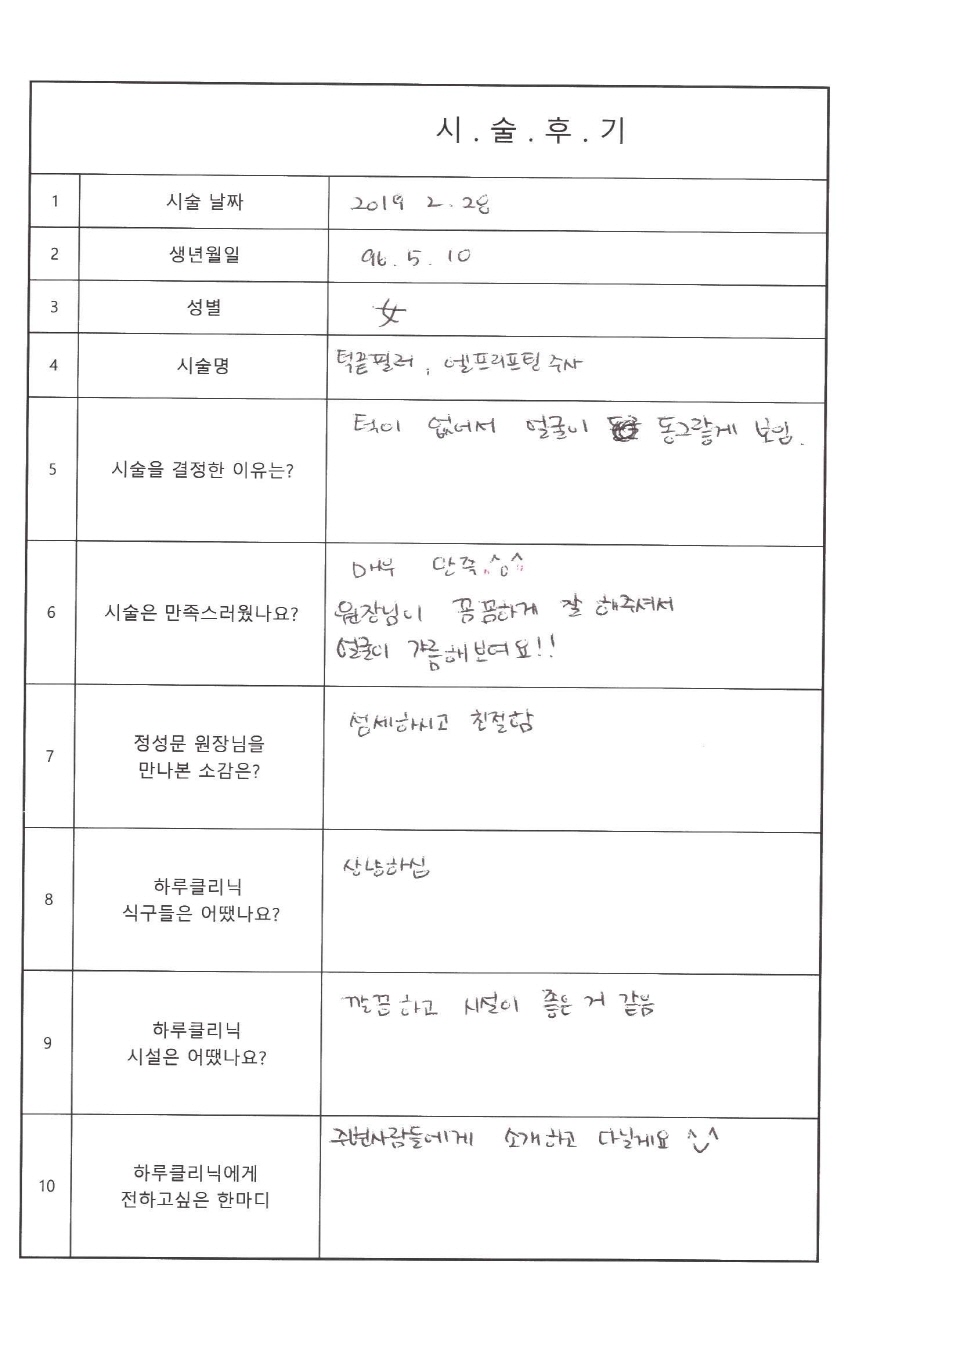 시.술.후.기
1 시술 날짜 2019 2.28
2 생년월일 96.5.10
3 성별 女
4 시술명 턱끝필러, 엘프리프팅 주사
5 시술을 결정한 이유는? 턱이 없어서 얼굴이 동그랗게 보임.
6 시술은 만족스러웠나요?
매우 만족 ^o^
원장님이 꼼꼼하게 잘 해주셔서
얼굴이 갸름해보여요!!
7 정성문 원장님을
만나본 소감은?
섬세하시고 친절함
8 하루클리닉
식구들은 어땠나요?
상냥하심
9 하루클리닉
시설은 어땠나요?
깔끔하고 시설이 좋은 거 같음
10 하루클리닉에게
전하고싶은 한마디
주변사람들에게 소개하고 다닐게요 ^^